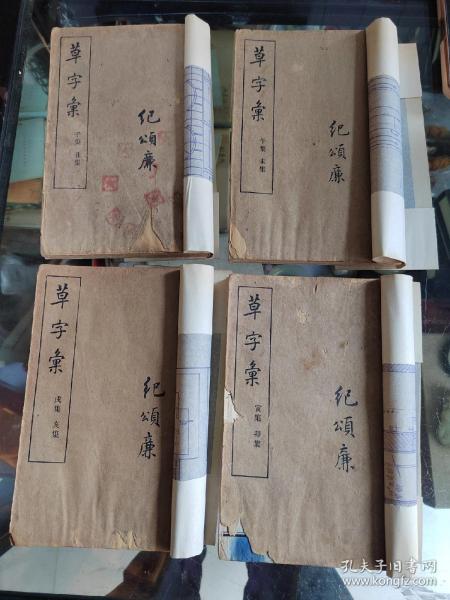 草字彙
子集 丑集
纪頌廉
草字彙
午集 未集
纪頌廉
草字彙
戌集 亥集
纪頌廉
草字彙
寅集 卯集
纪頌廉
孔夫子旧书网
www.kongfz.com